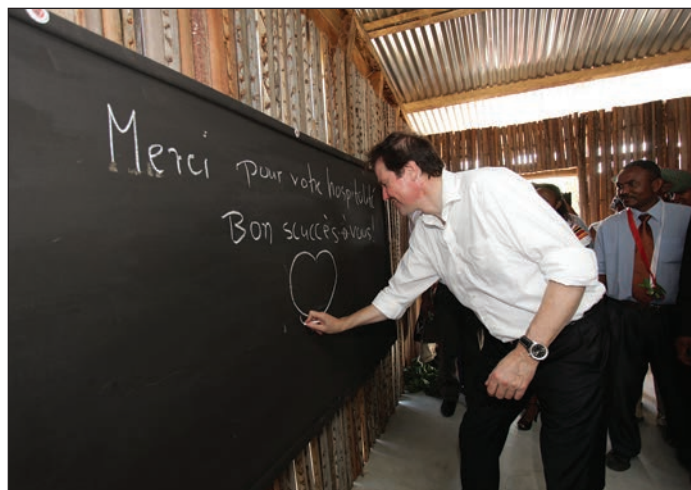 Merci pour votre hospitalité
Bon succcès à vous!